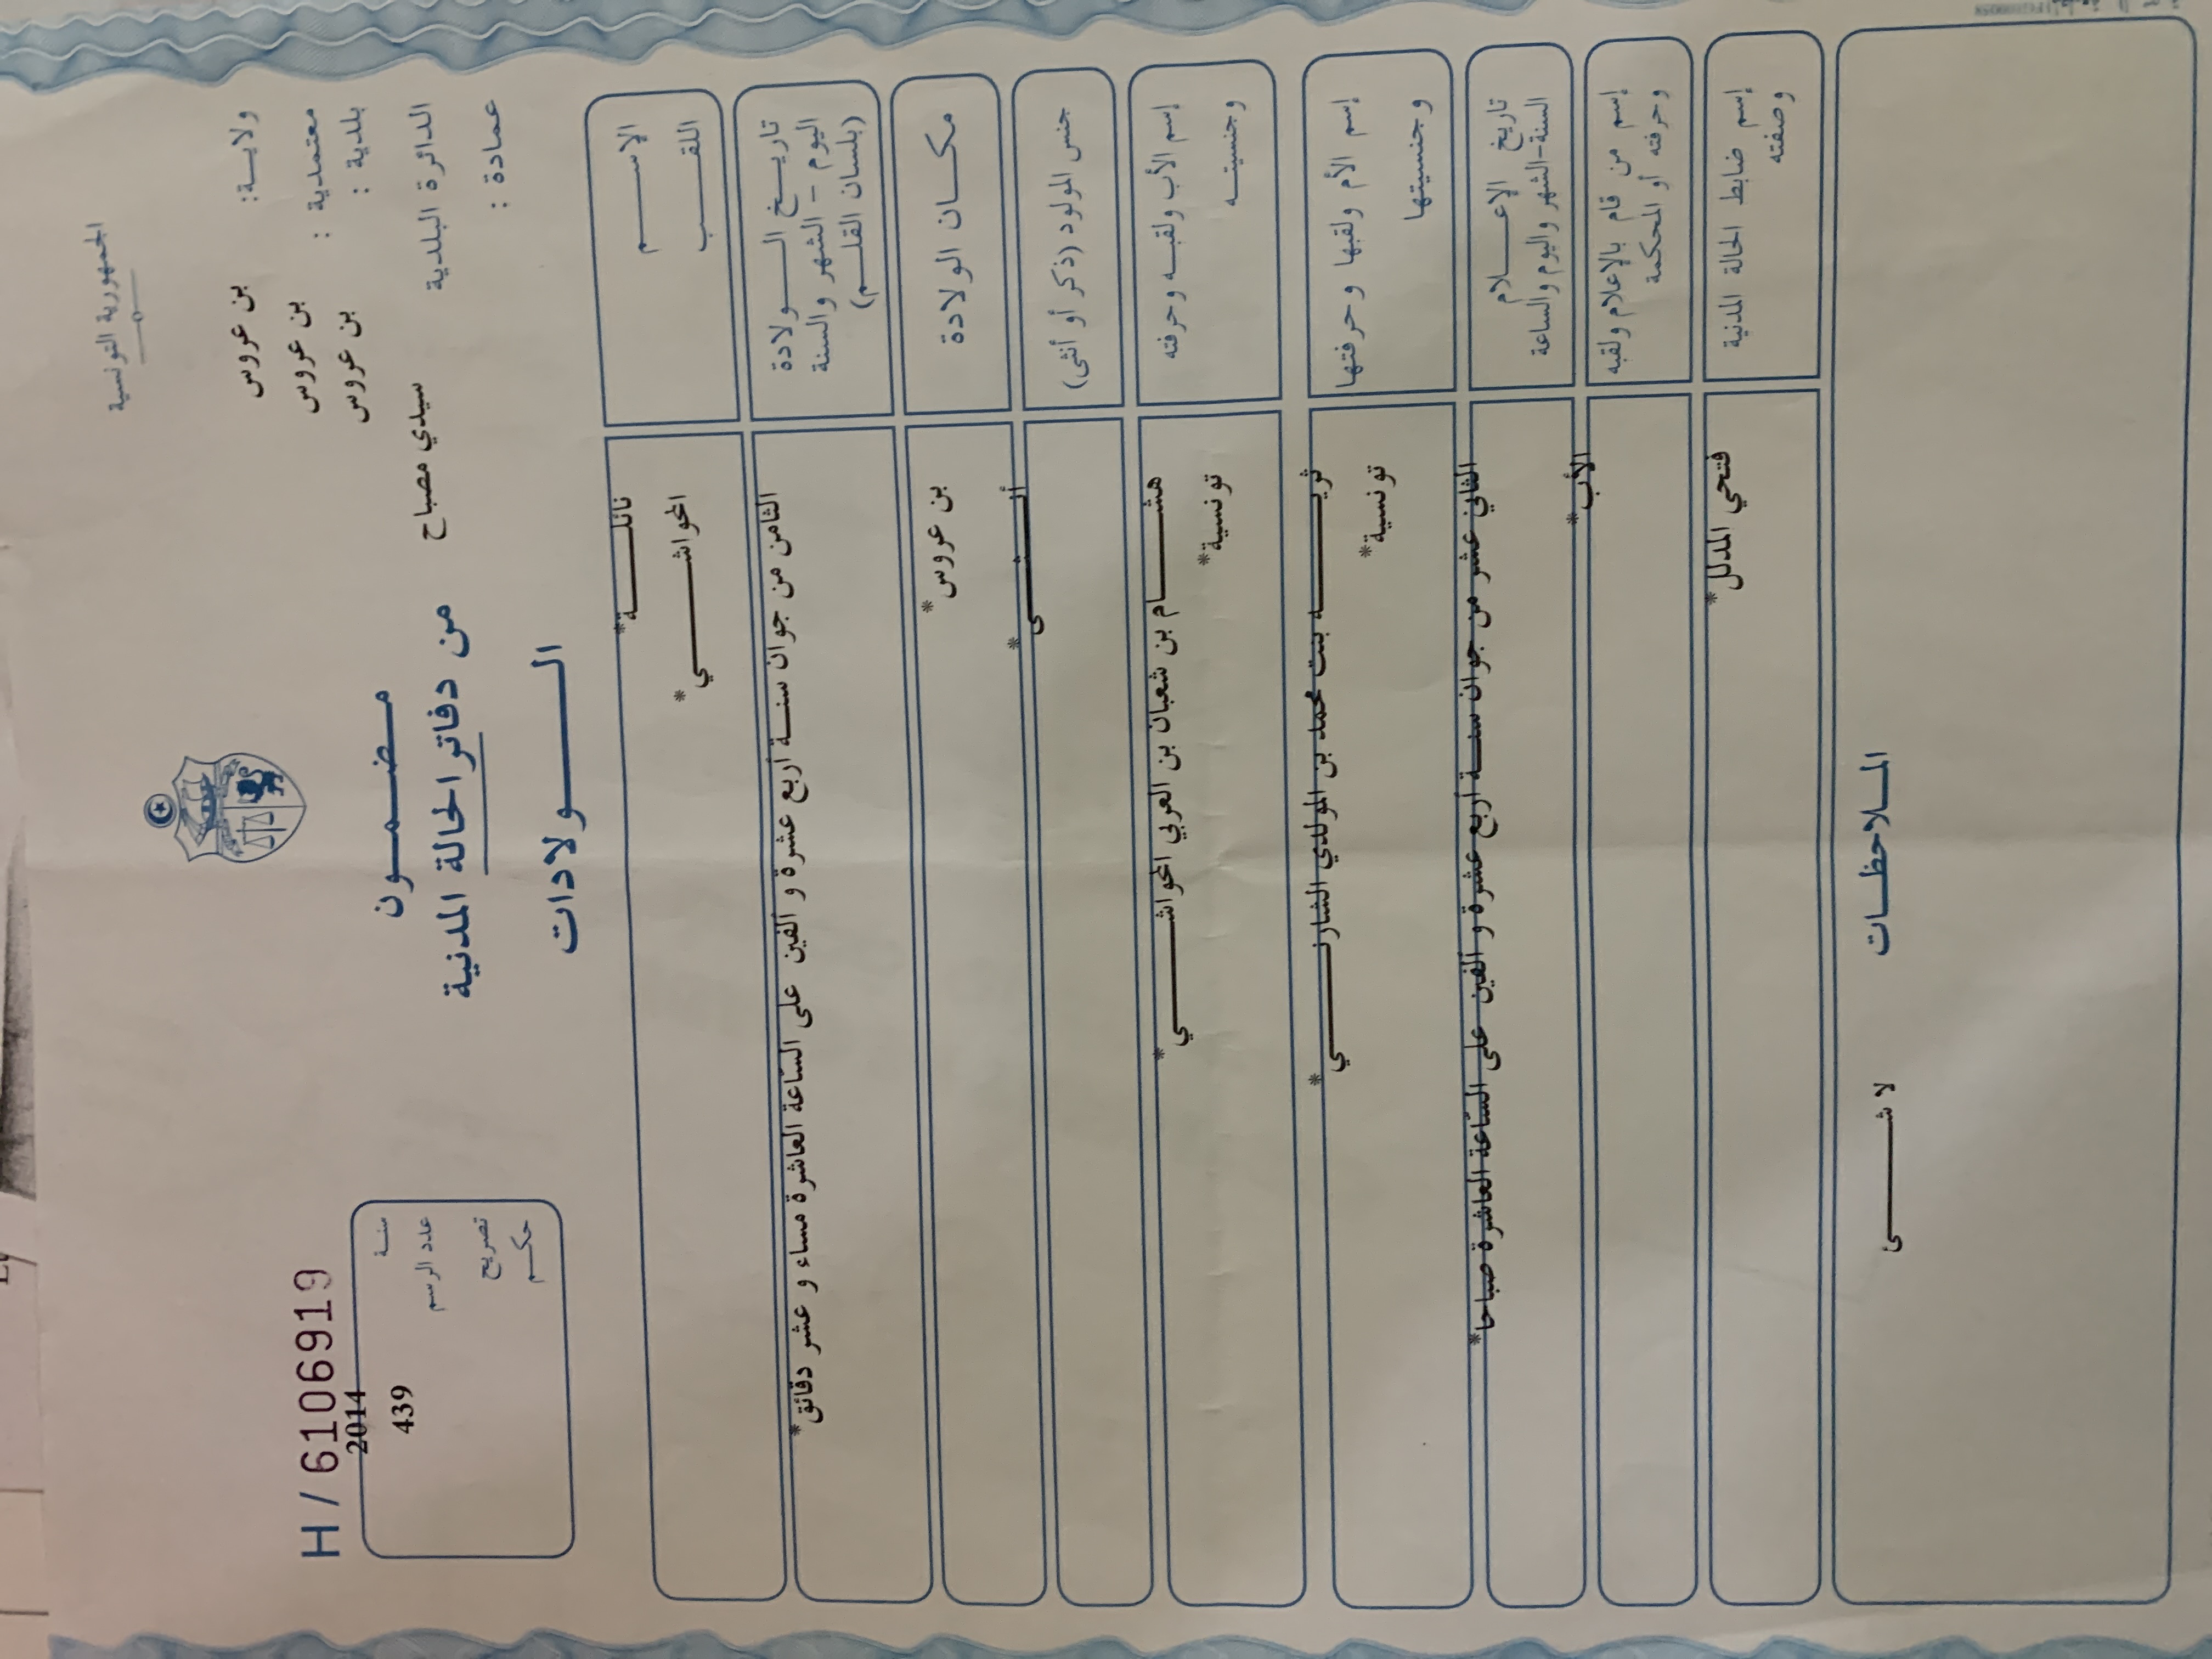 الجمهورية التونسية
ولاية: بن عروس
معتمدية : بن عروس
بلدية : بن عروس
الدائرة البلدية سيدي مصباح
عمادة :
H / 6106919
سنة 2014
عدد الرسم 439
تصريح
حكم
مضمون
من دفاتر الحالة المدنية
الولادات
الاسم نائلة*
اللقب الحواشي*
تاريخ الولادة
اليوم - الشهر والسنة
(بلسان القلم)
الثامن من جوان سنة أربع عشرة و ألفين على الساعة العاشرة مساء و عشر دقائق*
مكان الولادة بن عروس*
جنس المولود (ذكر أو أنثى) أنثى*
إسم الأب ولقبه وحرفته هشام بن شعبان بن العربي الحواشي*
وجنسيته تونسية*
إسم الأم ولقبها وحرفتها ثريه بنت محمد بن المولدي الشارني*
وجنسيتها تونسية*
تاريخ الإعلام
السنة-الشهر واليوم والساعة
الثاني عشر من جوان سنة أربع عشرة و ألفين على الساعة العاشرة صباحا*
إسم من قام بالإعلام ولقبه
وحرفته أو المحكمة
الأب*
إسم ضابط الحالة المدنية
وصفته
فتحي المدلل*
الملاحظات
لا شئ